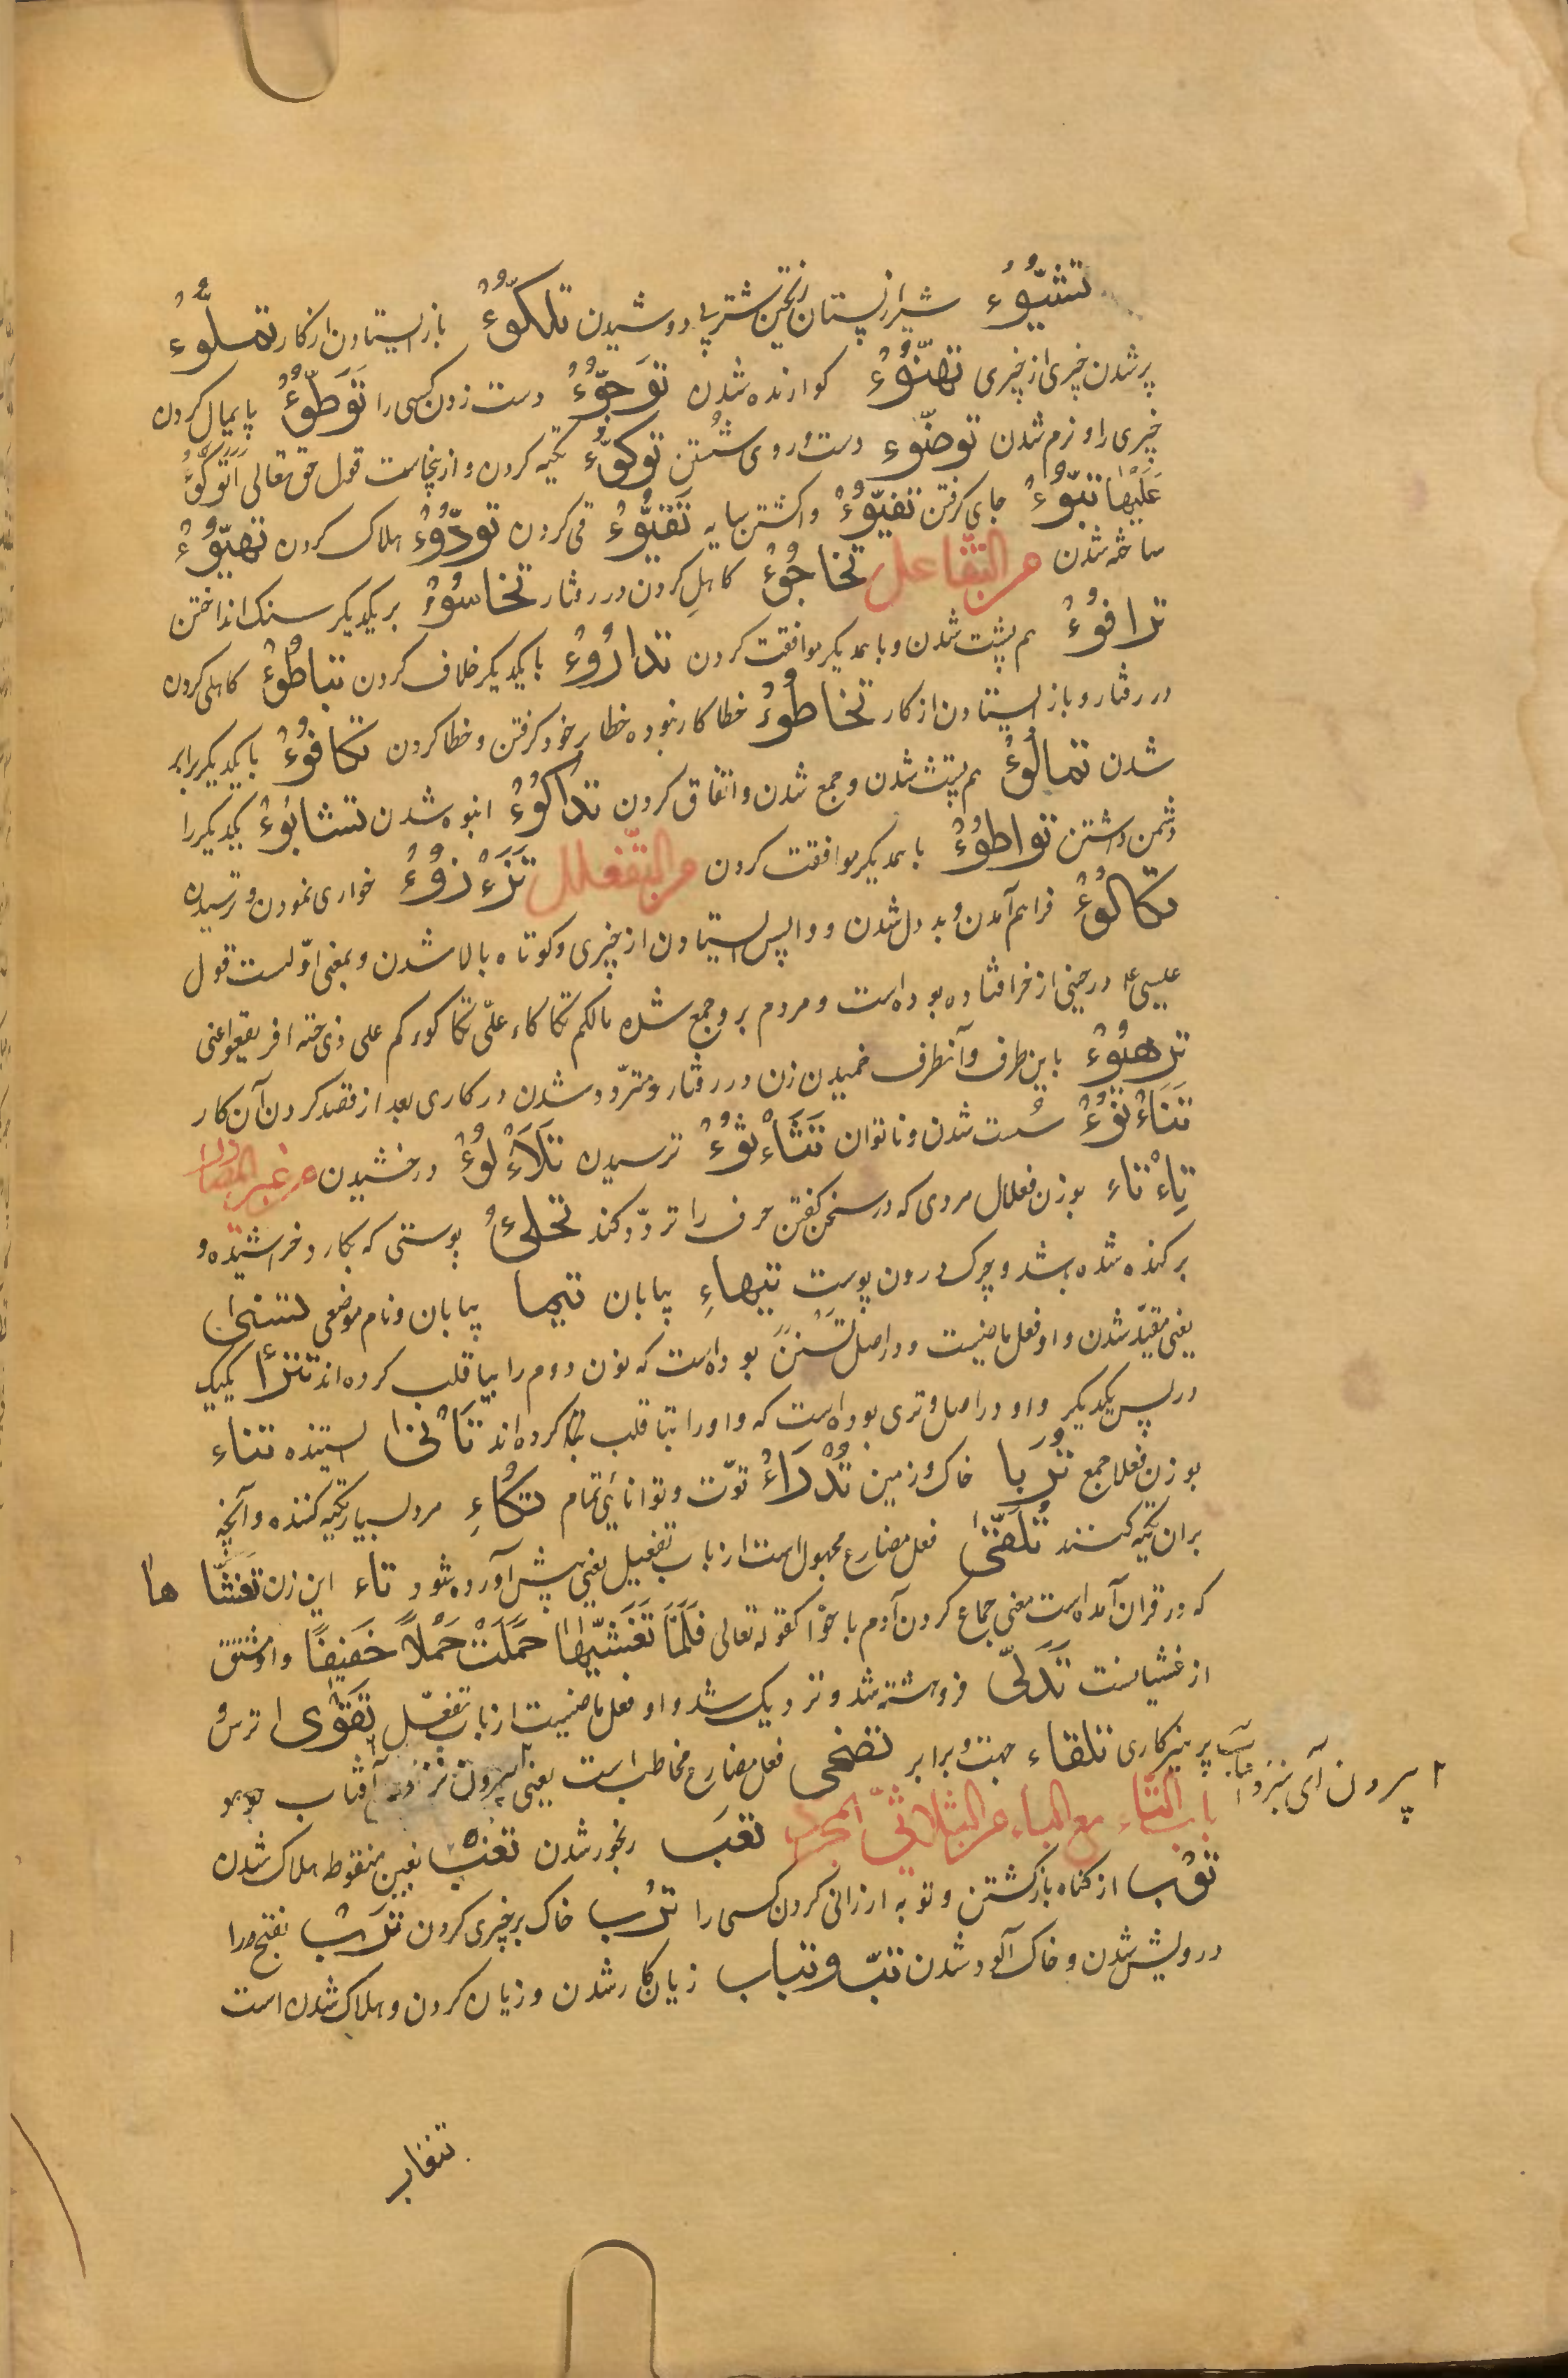 تشیّؤء شیر از پستان ریختن شتر بی دوشیدن تلکّؤء باز ایستادن از کار تملّؤء
پر شدن چیزی از چیزی تهنّؤء کوارنده شدن توجّؤء دست زدن کسی را توطّؤء پایمال کردن
چیزی را و نرم شدن توضّوء دست و روی شستن توکّؤء تکیه کردن و ازینجاست قول حق تعالی اتوکّؤ
علیها تبوّء جای کرفتن تفیّؤء واکشتن سایه تقیّؤء قی کردن تودّؤء هلاک کردن تهیّؤء
ساخته شدن من التفاعل تخاجؤء کاهلی کردن در رفتار تخاسؤء بر یکدیکر سنک انداختن
ترافؤء هم پشت شدن و با همدیکر موافقت کردن تدارؤء با یکدیکر خلاف کردن تباطؤء کاهلی کردن
در رفتار و باز ایستادن از کار تخاطؤء خطا کار نبوده خطا بر خود کرفتن و خطا کردن تکافؤء با یکدیکر برابر
شدن تمالؤء هم پشت شدن و جمع شدن و اتفاق کردن تداکؤء انبوه شدن تشانؤء یکدیکر را
دشمن داشتن تواطؤء با همدیکر موافقت کردن من التفعلل تزءزؤء خواری نمودن و ترسیدن
تکاکؤء فراهم آمدن و بد دل شدن و واپس ایستادن از چیزی و کوتاه بالا شدن و بمعنی اوّلست قول
عیسی ء در حینی از خر افتاده بوده است و مردم بر و جمع شده مالکم تکاکاء علیّ تکاکوءکم علی ذی جنة افرنقعوا عنی
ترهیؤء باین طرف و آنطرف خمیدن زن در رفتار و متردّد شدن در کاری بعد از قصد کردن آن کار
تناءنؤء سست شدن و ناتوان تثاءثؤء ترسیدن تلاءلؤء درخشیدن من غیر المصادر
تاءتاء بوزن فعلال مردی که در سخن کفتن حرف تا را تردّد کند تحلئ پوستی که بکارد خراشیده و
برکنده شده باشد و چرک درون پوست تیهاء بیابان تیما بیابان و نام موضعی تسنی
یعنی مقیّد شدن و او فعل ماضیست و در اصل تسنن بوده است که نون دوم را بیا قلب کرده اند تترا یکیک
در پس یکدیکر و او در اصل وتری بوده است که واو را بتا قلب کرده اند تانی ایستنده تناء
بوزن فعلا جمع تربا خاک و زمین تدراء قوّت و توانائی تمام تکاء مرد بسیار تکیه کننده و آنچه
بران تکیه کنند تلقّی فعل مضارع مجهول است از باب تفعیل یعنی پیش آورده شود تاء این زن تغشّا ها
که در قران آمده است معنی جماع کردن آدم با حوّا کقوله تعالی فلمّا تغشّیها حملت حملا خفیفا و او مشتق
از غشیانست تدلّی فروهشته شد و نزدیک شد و او فعل ماضیست از باب تفعّل تقوی ترس و
پرهیزکاری تلقاء جهت و برابر تضحی فعل مضارع مخاطب است یعنی بیرون آفتاب
ا بیرون آی
باب التّاء مع الباء من الثلاثیّ المجرد تعب رنجور شدن تغب بغین منقوط هلاک شدن
توب از کناه بازکشتن و توبه ارزانی کردن کسی را ترب خاک بر چیزی کردن ترب بفتح را
درویش شدن و خاک آلود شدن تبّ و تباب زیان کار شدن و زیان کردن و هلاک شدن است